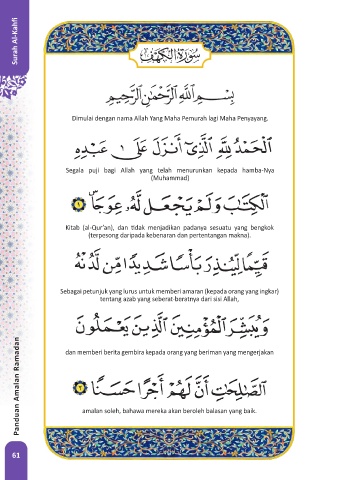 Surah Al-Kahfi
سُورَةُ الْكَهْفِ
بِسْمِ ٱللَّهِ ٱلرَّحْمَٰنِ ٱلرَّحِيمِ
Dimulai dengan nama Allah Yang Maha Pemurah lagi Maha Penyayang.
ٱلْحَمْدُ لِلَّهِ ٱلَّذِىٓ أَنزَلَ عَلَىٰ عَبْدِهِ
Segala puji bagi Allah yang telah menurunkan kepada hamba-Nya
(Muhammad)
ٱلْكِتَٰبَ وَلَمْ يَجْعَل لَّهُۥ عِوَجَاۜ ١
Kitab (al-Qur’an), dan tidak menjadikan padanya sesuatu yang bengkok
(terpesong daripada kebenaran dan pertentangan makna).
قَيِّمًا لِّيُنذِرَ بَأْسًا شَدِيدًا مِّن لَّدُنْهُ
Sebagai petunjuk yang lurus untuk memberi amaran (kepada orang yang ingkar)
tentang azab yang seberat-beratnya dari sisi Allah,
وَيُبَشِّرَ ٱلْمُؤْمِنِينَ ٱلَّذِينَ يَعْمَلُونَ
dan memberi berita gembira kepada orang yang beriman yang mengerjakan
ٱلصَّٰلِحَٰتِ أَنَّ لَهُمْ أَجْرًا حَسَنًا ٢
amalan soleh, bahawa mereka akan beroleh balasan yang baik.
Panduan Amalan Ramadan
61